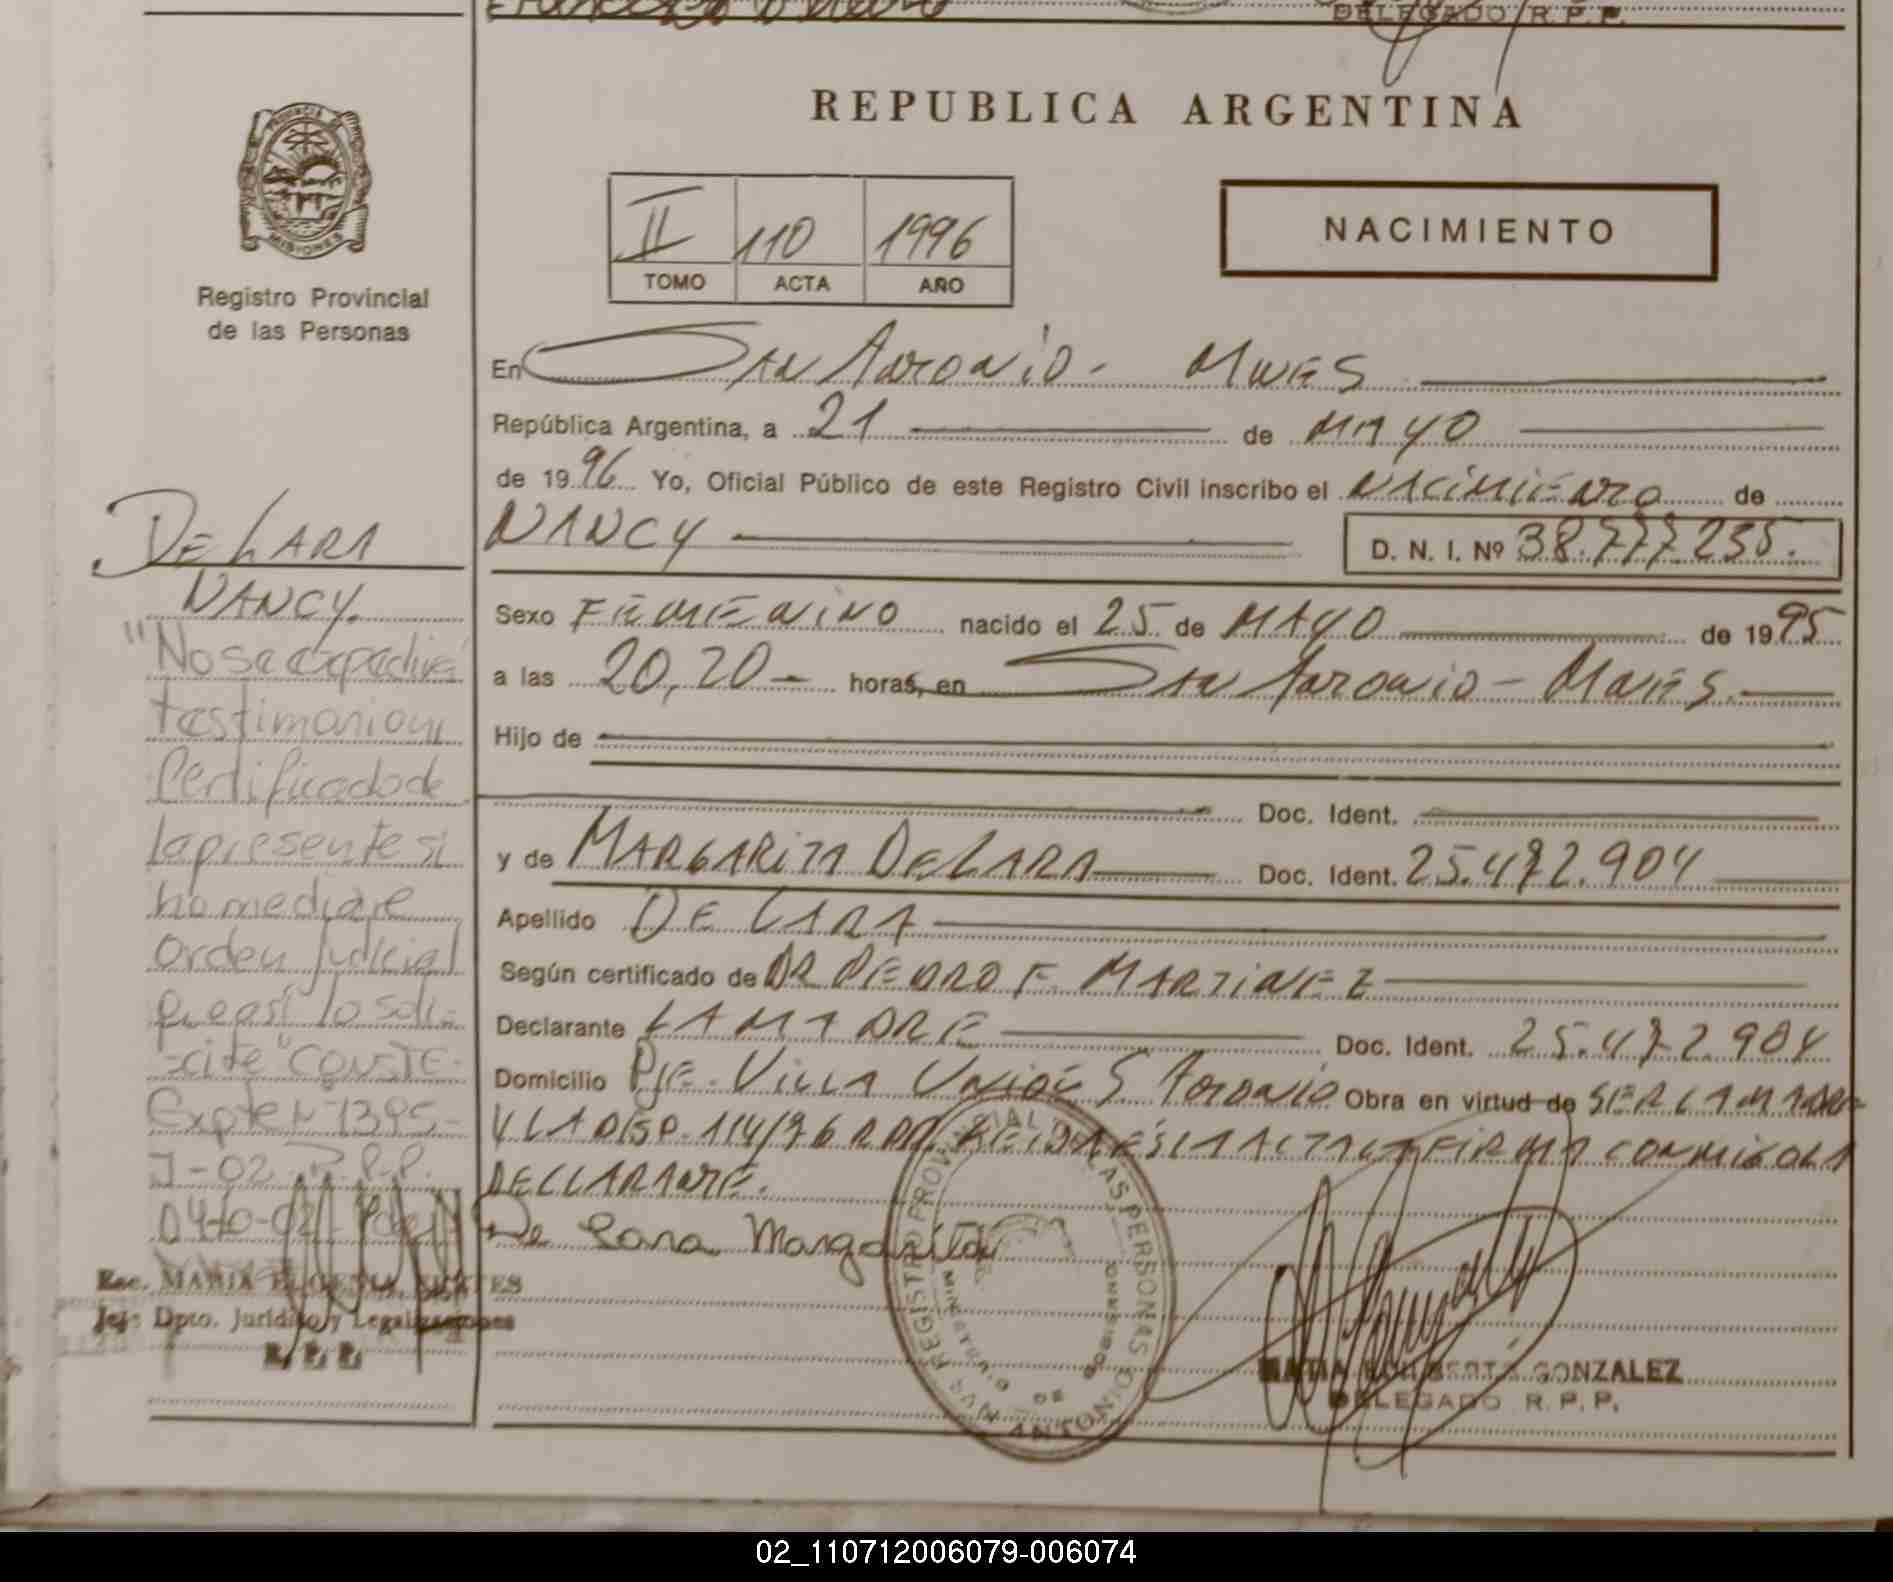 DELEGADO R. P. P.
PROVINCIA DE
MISIONES
Registro Provincial
de las Personas
REPUBLICA ARGENTINA
II 110 1996
TOMO ACTA AÑO
NACIMIENTO
En San Antonio - Mnes
República Argentina, a 21 de MAYO
de 1996 Yo, Oficial Público de este Registro Civil inscribo el NACIMIENTO de
NANCY D. N. I. Nº 38.777.235.
Sexo FEMENINO nacido el 25 de MAYO de 1995
a las 20,20 - horas, en San Antonio - Mnes.
Hijo de
Doc. Ident.
y de MARGARITA DE LARA Doc. Ident. 25.472.904
Apellido DE LARA
Según certificado de DR PEDRO F. MARTINEZ
Declarante LA MADRE Doc. Ident. 25.472.904
Domicilio Pje. Villa Union S. Antonio Obra en virtud de SER LA MADRE
Y LA DISP. 114/96 RPP. LEIDA ESTA ACTA LA FIRMA CONMIGO LA
DECLARANTE.
De Lara Margarita
REGISTRO PROVINCIAL DE LAS PERSONAS
MINISTERIO DE GOBIERNO
SAN ANTONIO
GONZALEZ
DELEGADO R. P. P.
DE LARA
NANCY.
"No se expedirá
testimonio ni
Certificado de
la presente si
no mediare
Orden Judicial
que así lo soli-
cite" CONSTE.
Expte Nº 1395-
J-02 R.P.P.
04-10-02
Esc. MARIA EUGENIA
Jefe Dpto. Jurídico y Legalizaciones
R. P. P.
02_110712006079-006074